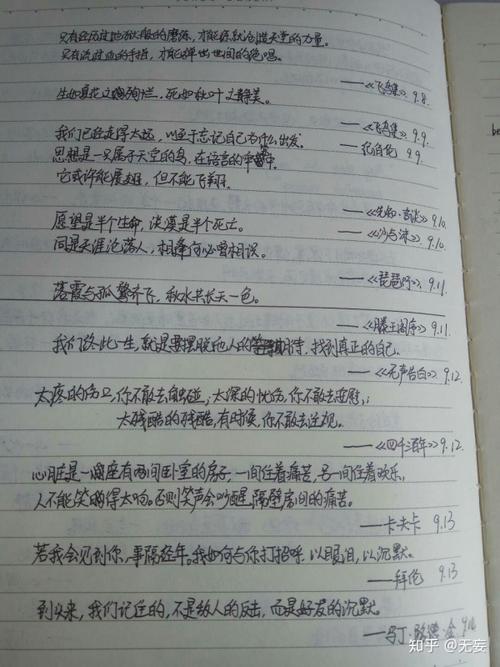 只有经历过地狱般的磨练,才能练就创造天堂的力量。
只有流过血的手指,才能弹出世间的绝唱。
——《飞鸟集》9.8
生如夏花之绚烂,死如秋叶之静美。
——《飞鸟集》9.9
我们已经走得太远,以至于忘记自己为什么出发。
——纪伯伦 9.9
思想是一只属于天空的鸟,在语言的牢笼中,
它或许能展翅,但不能飞翔。
——《先知·说话》9.10
愿望是半个生命,淡漠是半个死亡。
——《沙与沫》9.10
同是天涯沦落人,相逢何必曾相识。
——《琵琶行》9.11
落霞与孤鹜齐飞,秋水共长天一色。
——《滕王阁序》9.11
我们终此一生,就是要摆脱他人的期待,找到真正的自己。
——《无声告白》9.12
太疼的伤口,你不敢去触碰;太深的忧伤,你不敢去安慰;
太残酷的残酷,有时候,你不敢去注视。
——《四千年》9.12
心脏是一座有两间卧室的房子,一间住着痛苦,另一间住着欢乐,
人不能笑得太响。否则笑声会吵醒隔壁房间的痛苦。
——卡夫卡 9.13
若我会见到你,事隔经年。我如何与你打招呼,以眼泪,以沉默。
——拜伦 9.13
到头来,我们记住的,不是敌人的反击,而是好友的沉默。
——马丁·路德·金 9.14
be
知乎 @无妄